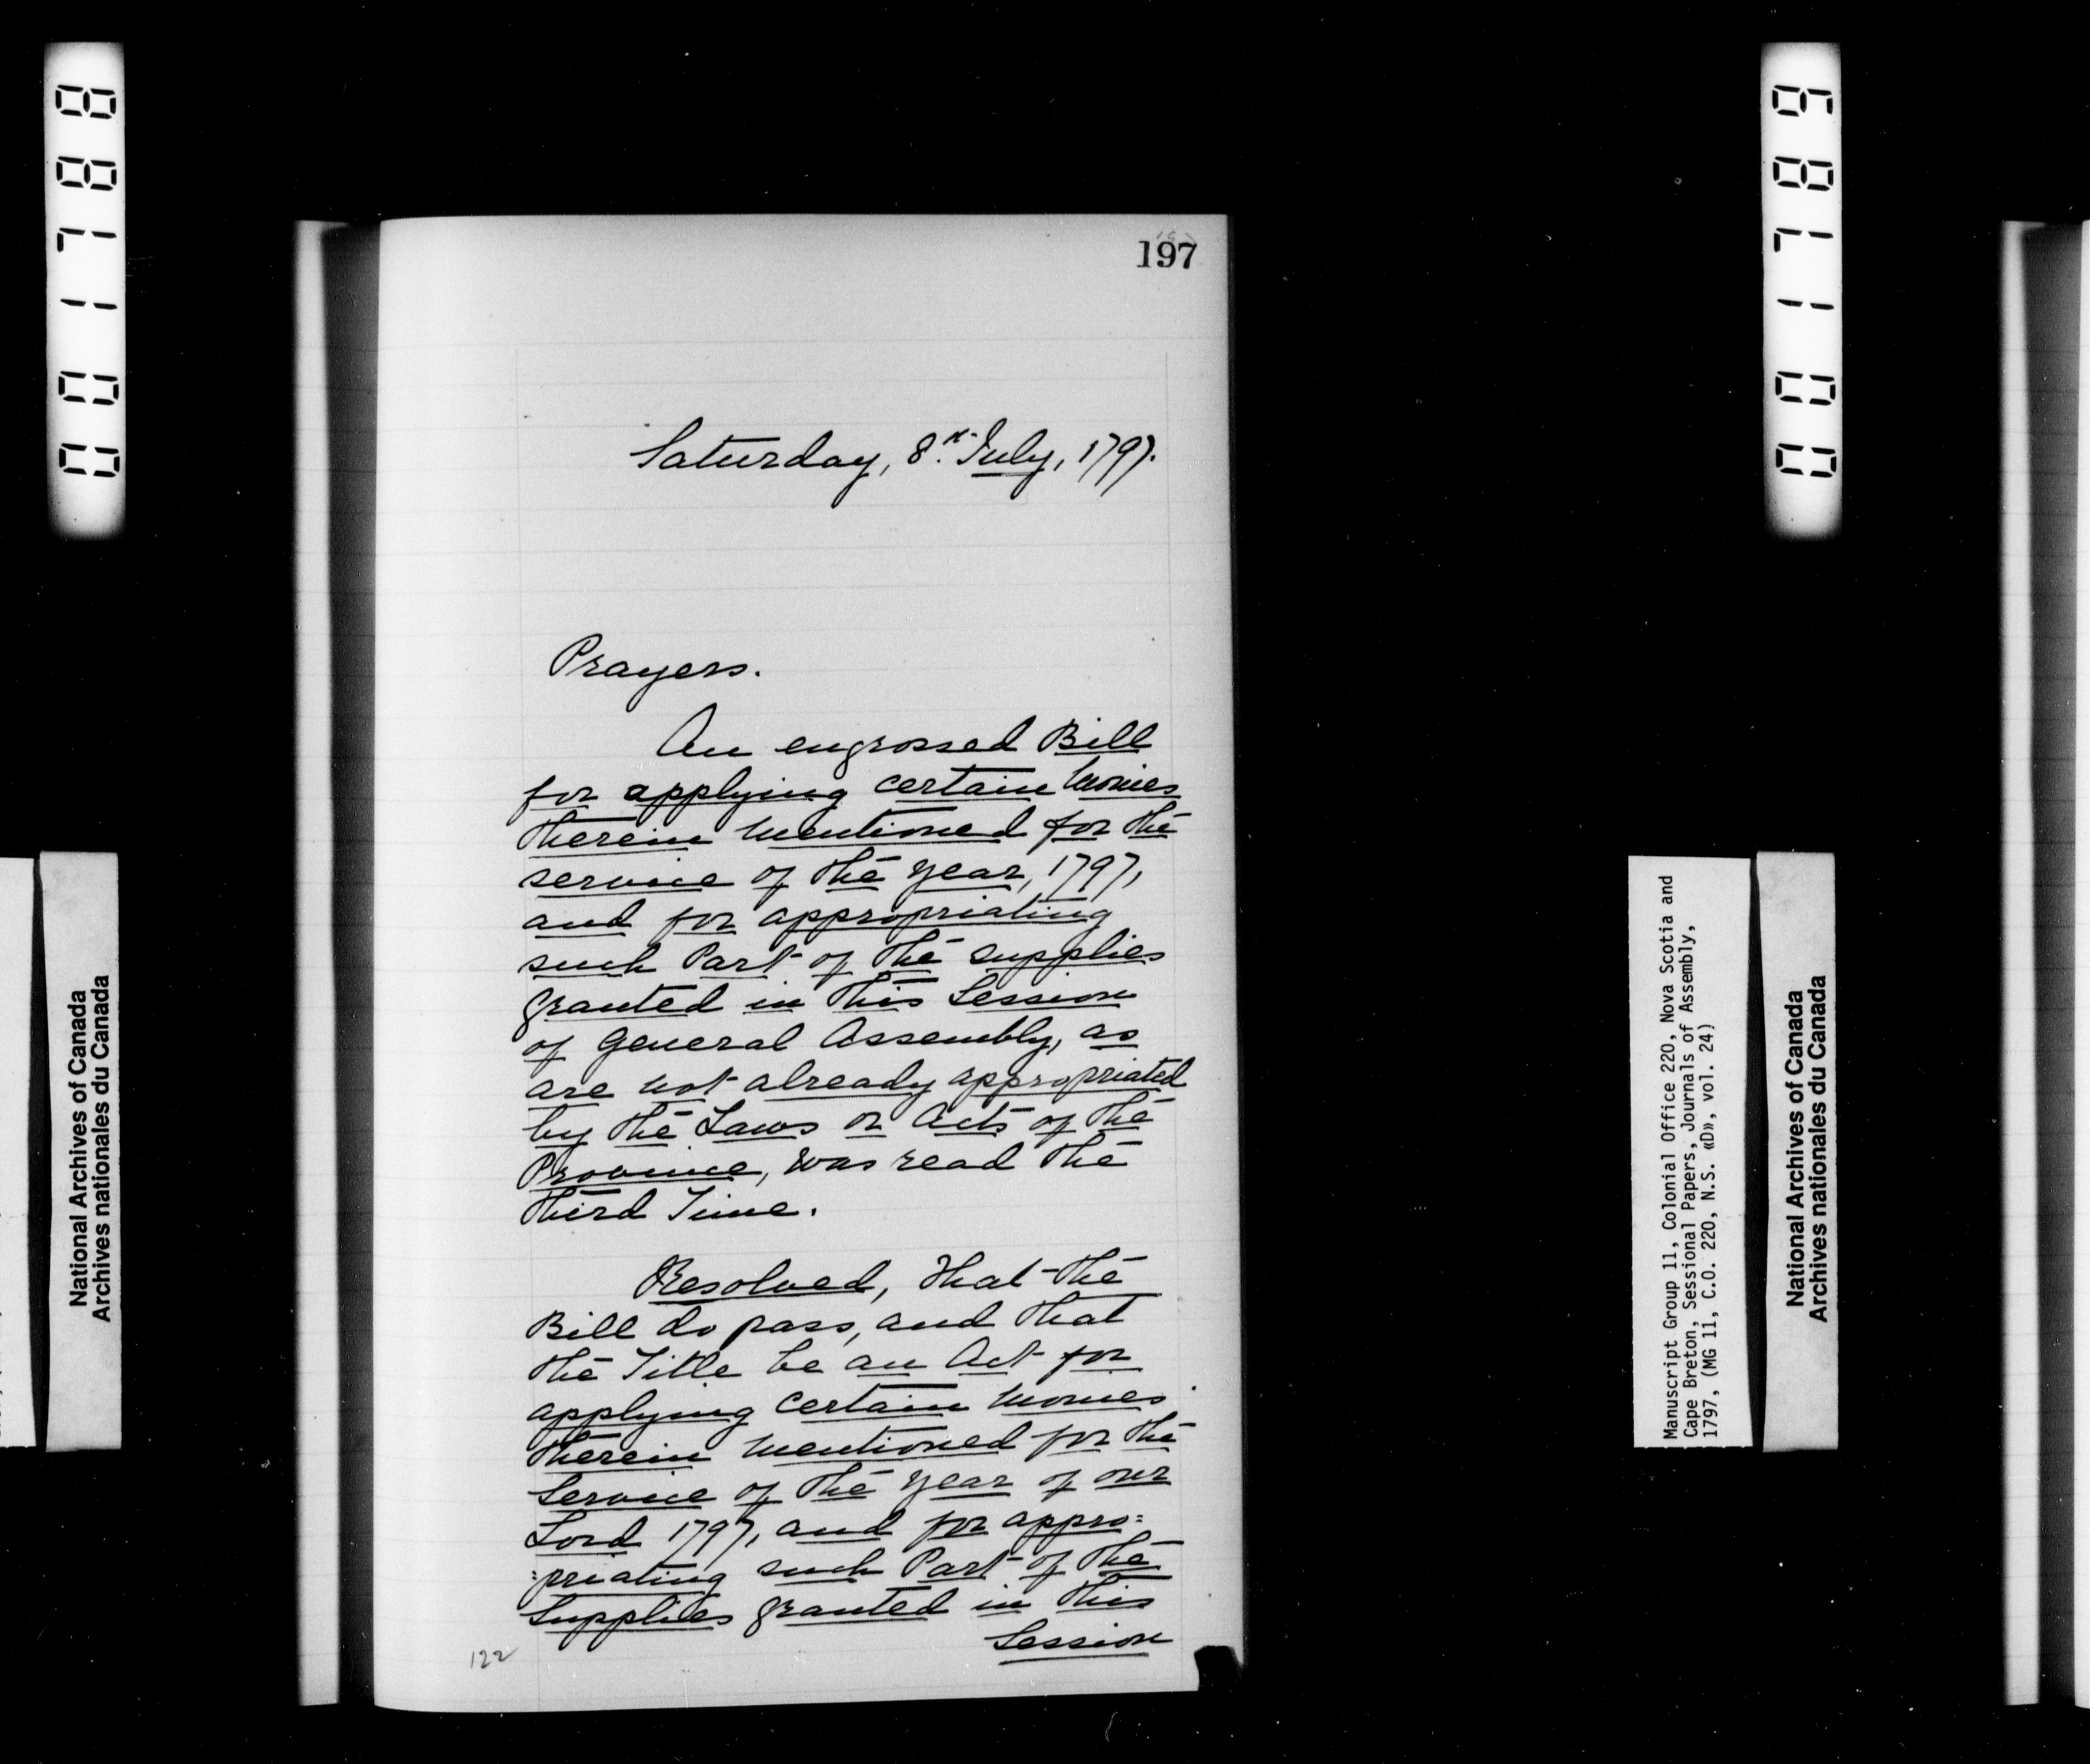 001788
001789
National Archives of Canada
Archives nationales du Canada
197
Saturday, 8th July, 1797.
Prayers.
An engrossed Bill
for applying certain monies
therein mentioned for the
service of the year, 1797,
and for appropriating
such Part of the supplies
granted in this Session
of General Assembly, as
are not already appropriated
by the Laws or Acts of the
Province, was read the
third Time.
Resolved, that the
Bill do pass, and that
the Title be an Act for
applying certain monies
therein mentioned for the
Service of the year of our
Lord 1797, and for appro=
=priating such Part of the
Supplies granted in this
Session
122
Manuscript Group 11, Colonial Office 220, Nova Scotia and
Cape Breton, Sessional Papers, Journals of Assembly,
1797, (MG 11, C.O. 220, N.S. «D», vol. 24)
National Archives of Canada
Archives nationales du Canada